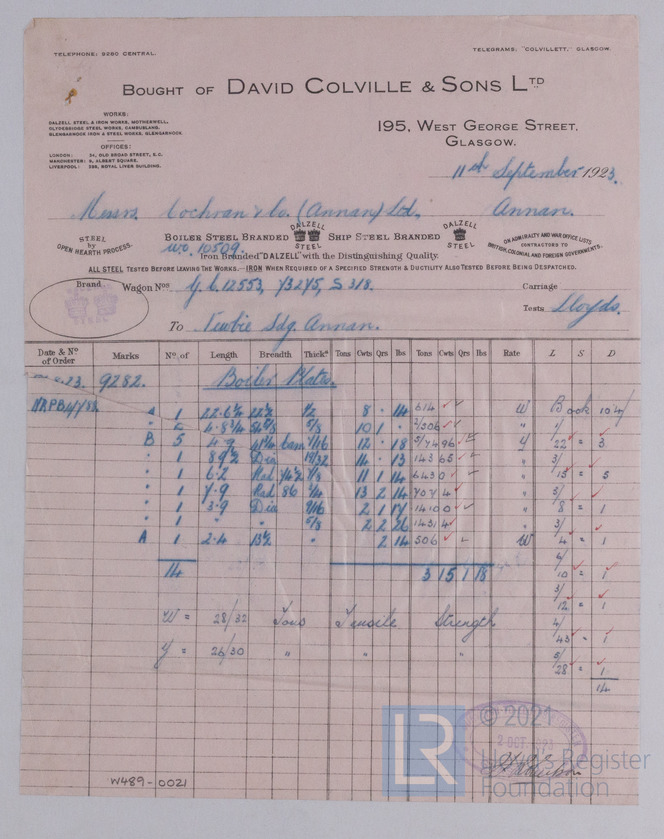 TELEPHONE: 9260 CENTRAL.
TELEGRAMS: "COLVILLETT," GLASGOW.
BOUGHT OF DAVID COLVILLE & SONS LTD
WORKS:
DALZELL STEEL & IRON WORKS, MOTHERWELL,
CLYDEBRIDGE STEEL WORKS, CAMBUSLANG,
GLENGARNOCK IRON & STEEL WORKS, GLENGARNOCK.
OFFICES:
LONDON: 34, OLD BROAD STREET, E.C.
MANCHESTER: 8, ALBERT SQUARE,
LIVERPOOL: ROYAL LIVER BUILDING.
195, WEST GEORGE STREET,
GLASGOW.
11th September 1923.
Messrs. Cochran & Co. (Annan) Ltd., Annan.
STEEL by OPEN HEARTH PROCESS.
BOILER STEEL BRANDED DALZELL STEEL SHIP STEEL BRANDED DALZELL STEEL
ON ADMIRALTY AND WAR OFFICE LISTS
CONTRACTORS TO
BRITISH, COLONIAL AND FOREIGN GOVERNMENTS.
W.O. 10509.
Iron Branded "DALZELL" with the Distinguishing Quality.
ALL STEEL TESTED BEFORE LEAVING THE WORKS.—IRON WHEN REQUIRED OF A SPECIFIED STRENGTH & DUCTILITY ALSO TESTED BEFORE BEING DESPATCHED.
Brand Wagon Nos G.C. 12553, 73275, S 318. Carriage
Tests Lloyds.
To Newbie Sdg. Annan.
Date & No of Order Marks No of Length Breadth Thicks Tons Cwts Qrs lbs Tons Cwts Qrs lbs Rate L S D
23. 9282. Boiler Plates.
A 1 22.6½ 22½ ½ 8 · 14 614 W Back
1 4.8¾ 5/8 10 1 · "
B 5 4.9 7/16 12 · 18 Y 22 = 3
" 1 8.9½ Dia 19/32 14 · 13 "
" 1 6.2 Rad 74½ 7/8 11 1 14 6430 " 15 = 5
" 1 7.9 Rad 86 13 2 14 "
" 1 3.9 Dia 9/16 2 1 17 " 8 = 1
" 1 " " 5/8 2 2 26 "
A 1 2.4 13½ " 2 14 506 W 4 = 1
14 3 15 1 18
10 = 1
12 = 1
W = 28/32 Tons Tensile Strength
43 = 1
Y = 26/30 " " "
28 = 1
14
© 2021
LR Lloyd's Register
Foundation
2 OCT. 1923
W489-0021